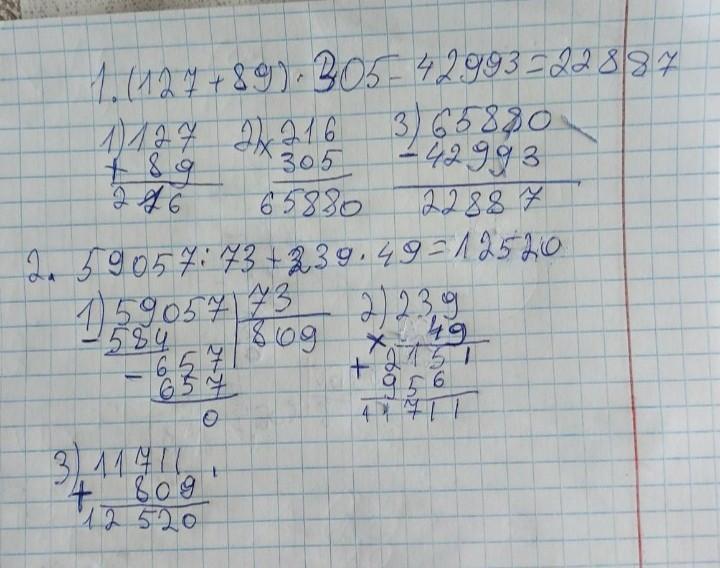 1. (127 + 89) · 305 - 42993 = 22887
1) 127 2) × 216 3) 65880
+ 89 305 - 42993
216 65880 22887
2. 59057 : 73 + 239 · 49 = 12520
1) 59057 | 73 2) 239
- 584 809 × 49
- 657 + 2151
657 956
0 11711
3) 11711
+ 809
12520